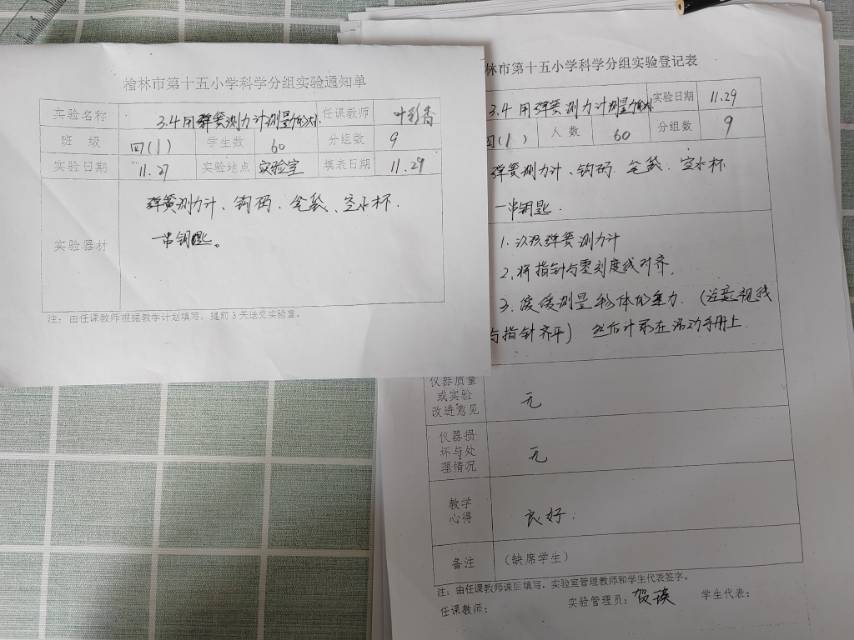 榆林市第十五小学科学分组实验通知单
实验名称 3.4用弹簧测力计测量力的大小 任课教师 叶彩香
班 级 四(1) 学生数 60 分组数 9
实验日期 11.27 实验地点 实验室 填表日期 11.29
弹簧测力计、钩码、笔袋、空水杯.
实验器材 一串钥匙。
注:由任课教师根据教学计划填写,提前3天送交实验室。
林市第十五小学科学分组实验登记表
3.4用弹簧测力计测量 实验日期 11.29
四(1) 人 数 60 分组数 9
弹簧测力计、钩码、笔袋、空水杯
一串钥匙.
1.认识弹簧测力计
2.将指针与零刻度线对齐.
3.缓缓测量物体的重力.(注意视线
与指针齐平) 然后记录在活动手册上.
仪器质量
或实验
改进意见 无
仪器损
坏与处
理情况 无
教学
心得 良好.
备注 (缺席学生)
注:由任课教师课后填写,实验室管理教师和学生代表签字。
任课教师: 实验管理员: 学生代表: